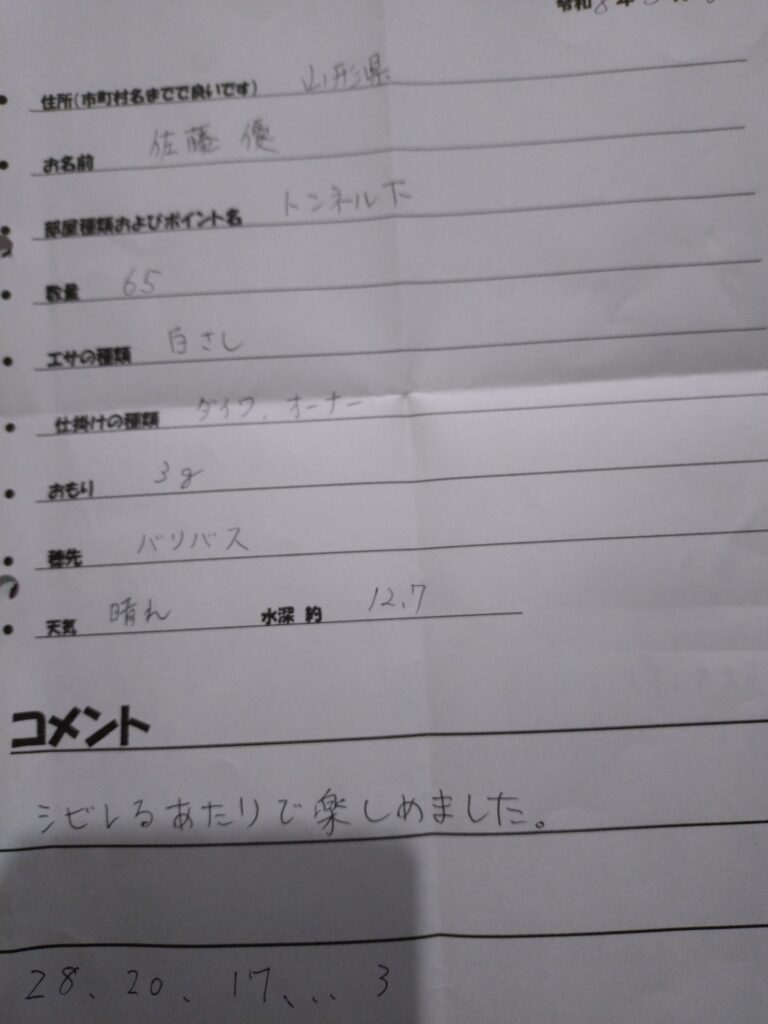 令和8年
住所(市町村名までで良いです) 山形県
お名前 佐藤 優
部屋種類およびポイント名 トンネル下
数量 65
エサの種類 白さし
仕掛けの種類 ダイワ、オーナー
おもり 3g
穂先 バリバス
天気 晴れ 水深 約 12.7
コメント
シビレるあたりで楽しめました。
28、20、17、、、3